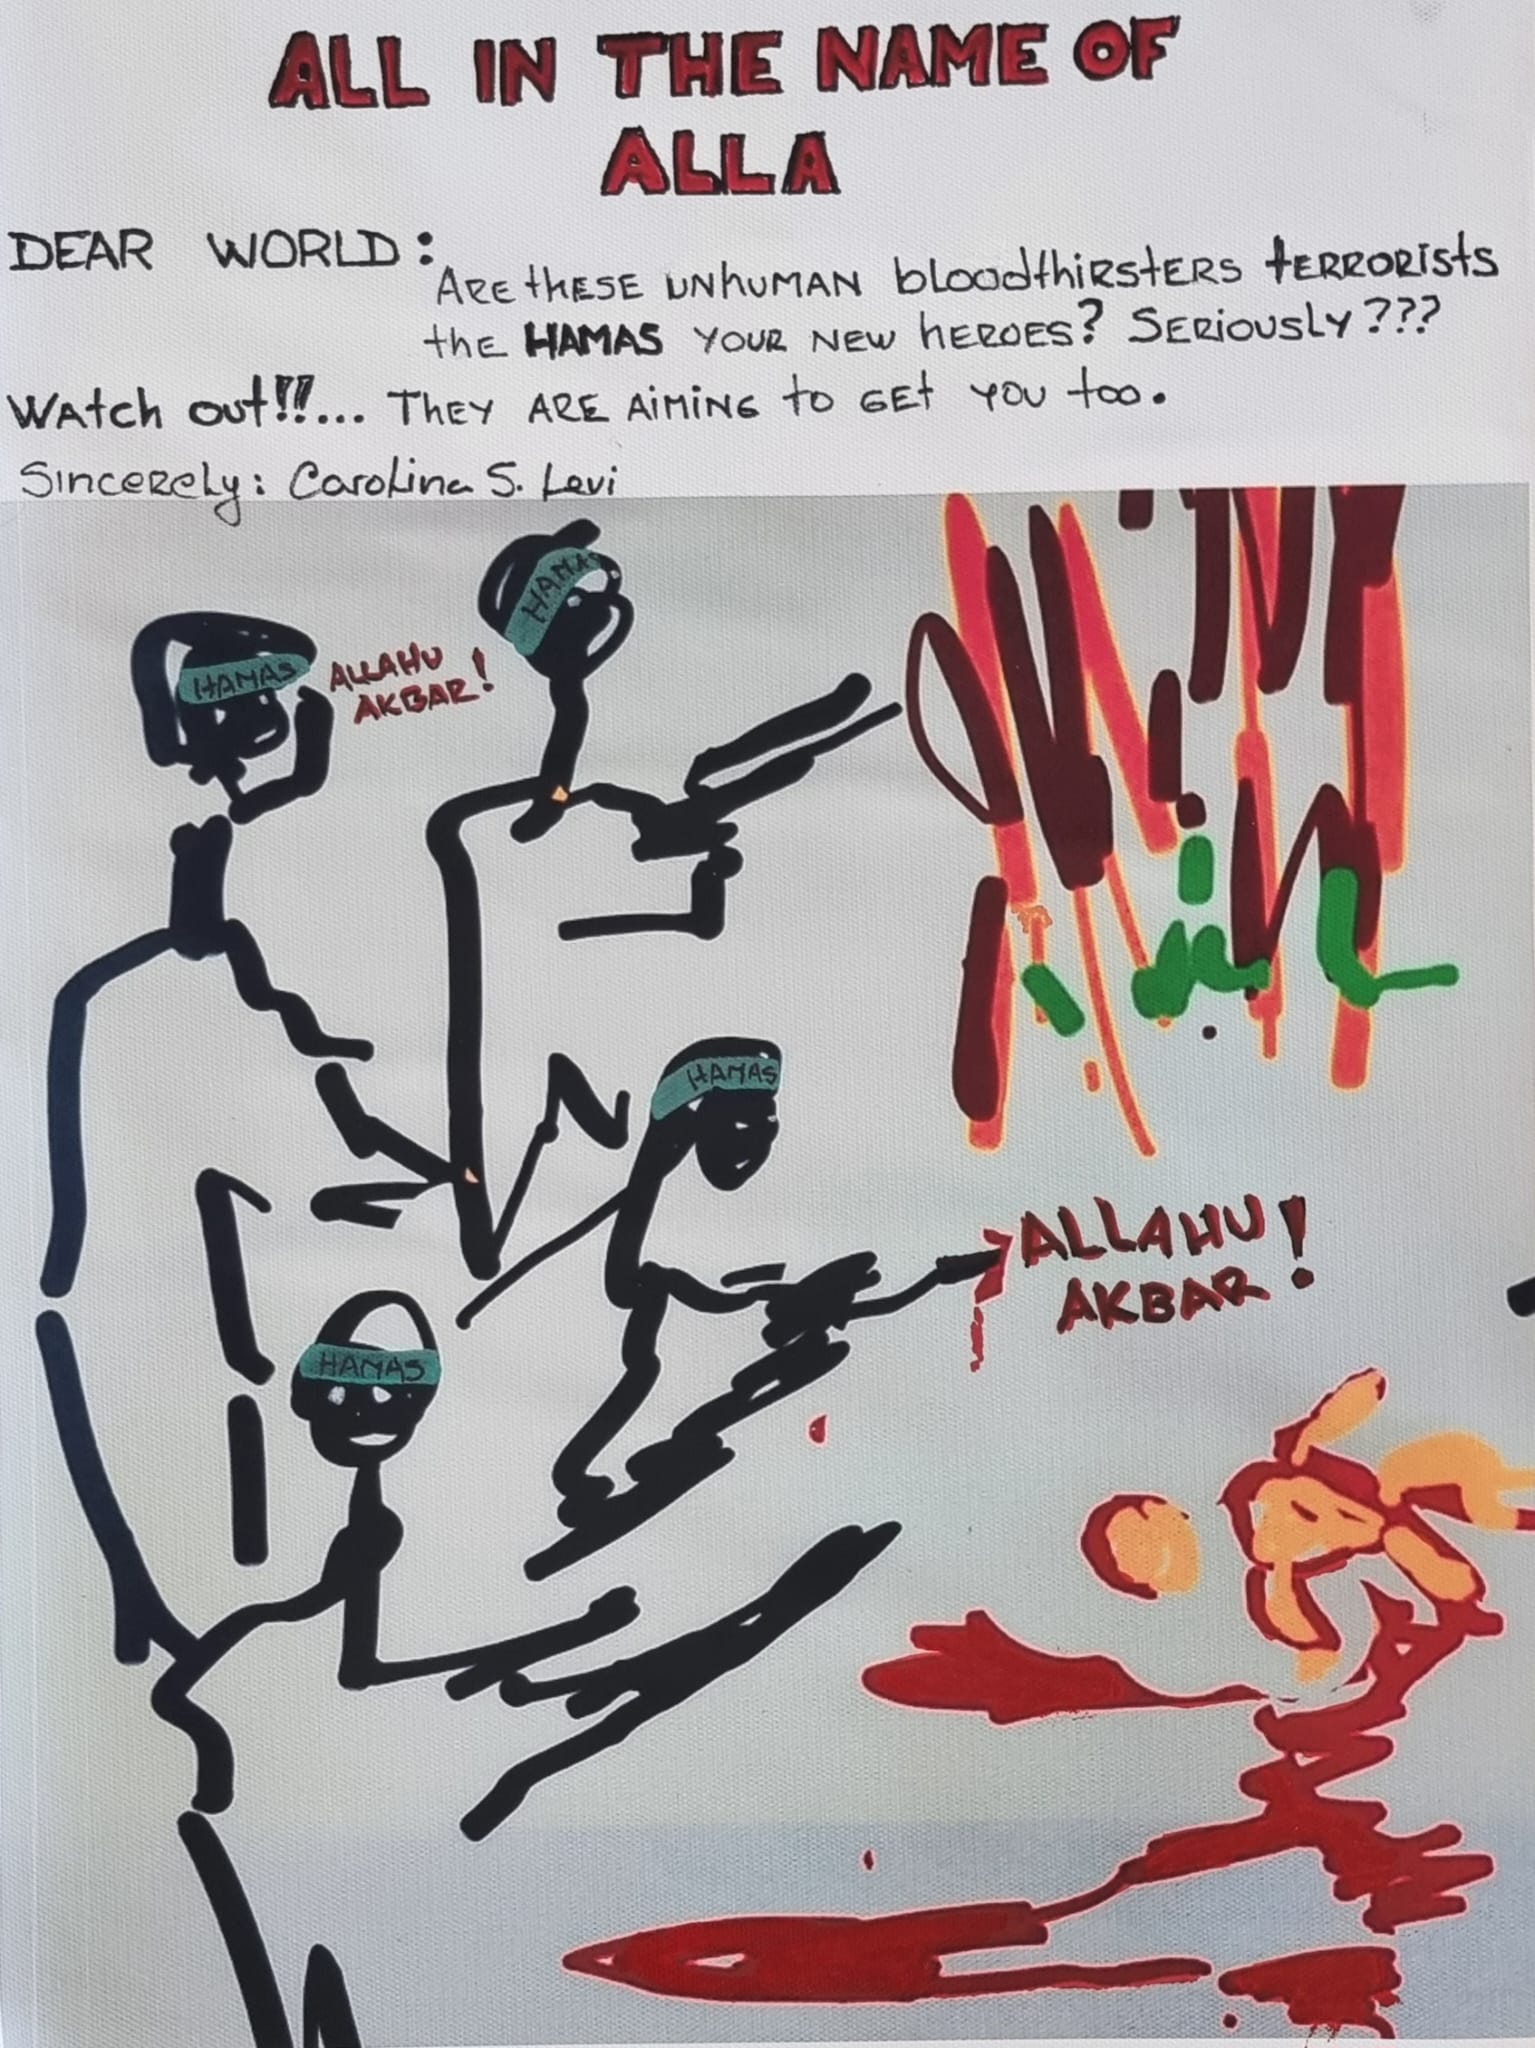 ALL IN THE NAME OF
ALLA
DEAR WORLD:
ARE thESE UNhUMAN bloodthiRstERS tERRORists
thE HAMAS YOUR NEW hEROES? SERiOUSLY???
WAtch out!!!... THEY ARE AiMiNG to GEt YOU too.
SincERELy: CaroLina S. Levi
HAMAS
HAMAS
ALLAHU
AKBAR!
HAMAS
ALLAHU
AKBAR!
HAMAS